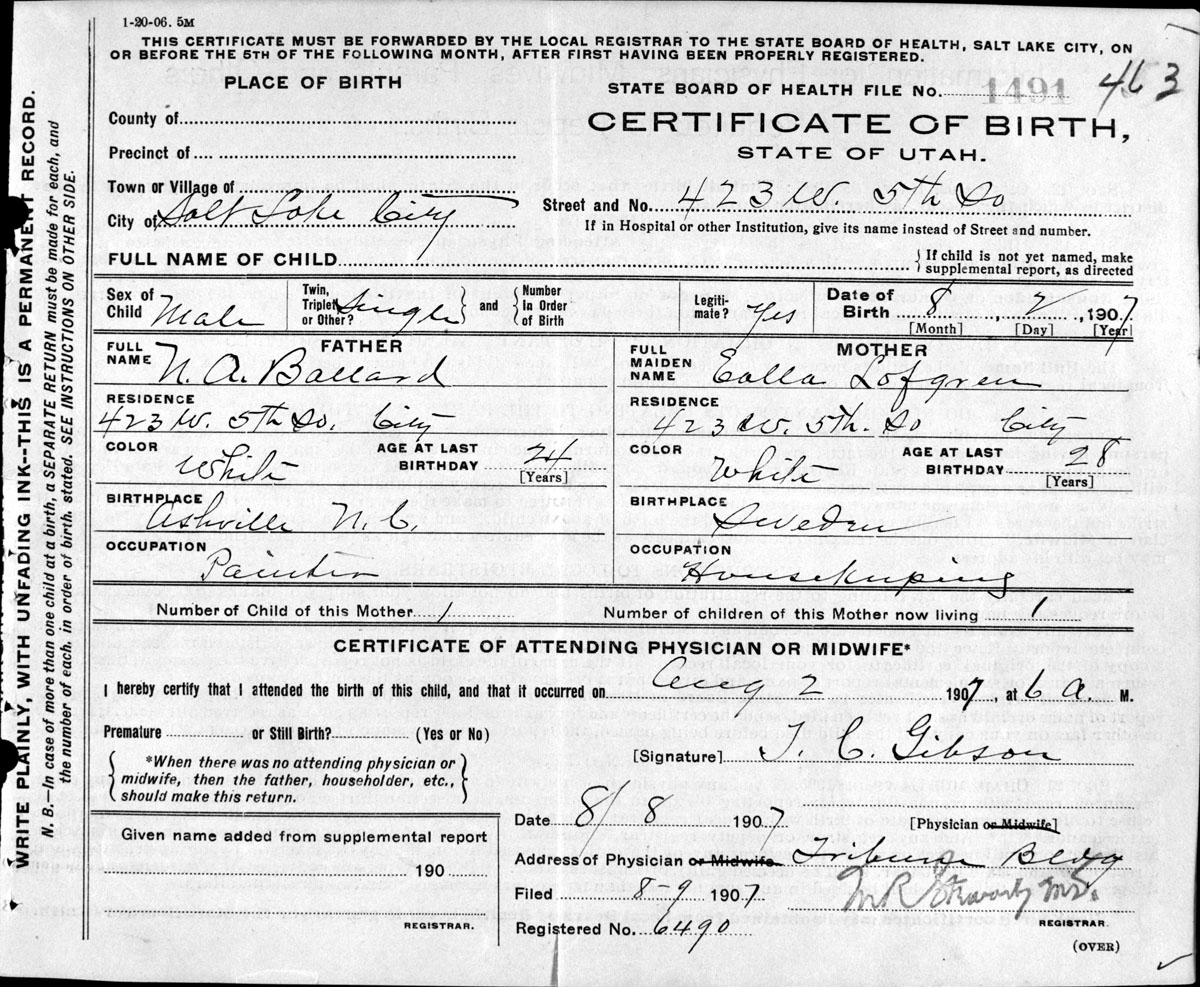 1-20-06. 5M
THIS CERTIFICATE MUST BE FORWARDED BY THE LOCAL REGISTRAR TO THE STATE BOARD OF HEALTH, SALT LAKE CITY, ON
OR BEFORE THE 5TH OF THE FOLLOWING MONTH, AFTER FIRST HAVING BEEN PROPERLY REGISTERED.
PLACE OF BIRTH
STATE BOARD OF HEALTH FILE No. 1491 463
County of
CERTIFICATE OF BIRTH,
Precinct of
STATE OF UTAH.
Town or Village of
City of Salt Lake City
Street and No. 423 W. 5th So
If in Hospital or other Institution, give its name instead of Street and number.
FULL NAME OF CHILD
If child is not yet named, make
supplemental report, as directed
Sex of
Child Male
Twin,
Triplet
or Other? Single
and
Number
In Order
of Birth
Legiti-
mate? Yes
Date of
Birth 8 2, 1907
[Month] [Day] [Year]
FATHER
FULL
NAME N. A. Ballard
RESIDENCE
423 W. 5th So. City
COLOR
White
AGE AT LAST
BIRTHDAY 24
[Years]
BIRTHPLACE
Ashville N. C.
OCCUPATION
Painter
Number of Child of this Mother 1
MOTHER
FULL
MAIDEN
NAME Ealla Lofgren
RESIDENCE
423 W. 5th. So City
COLOR
White
AGE AT LAST
BIRTHDAY 28
[Years]
BIRTHPLACE
Sweden
OCCUPATION
Housekeeping
Number of children of this Mother now living 1
CERTIFICATE OF ATTENDING PHYSICIAN OR MIDWIFE*
I hereby certify that I attended the birth of this child, and that it occurred on Aug 2 1907, at 6 a. M.
Premalure or Still Birth? (Yes or No)
[Signature] J. C. Gibson
*When there was no attending physician or
midwife, then the father, householder, etc.,
should make this return.
Date 8/8 1907
[Physician or Midwife]
Address of Physician or Midwife Tribune Bldg
Filed 8-9 1907
REGISTRAR.
Registered No. 6490
(OVER)
Given name added from supplemental report
190
REGISTRAR.
WRITE PLAINLY, WITH UNFADING INK--THIS IS A PERMANENT RECORD.
N. B.—In case of more than one child at a birth, a SEPARATE RETURN must be made for each, and
the number of each, in order of birth, stated. SEE INSTRUCTIONS ON OTHER SIDE.